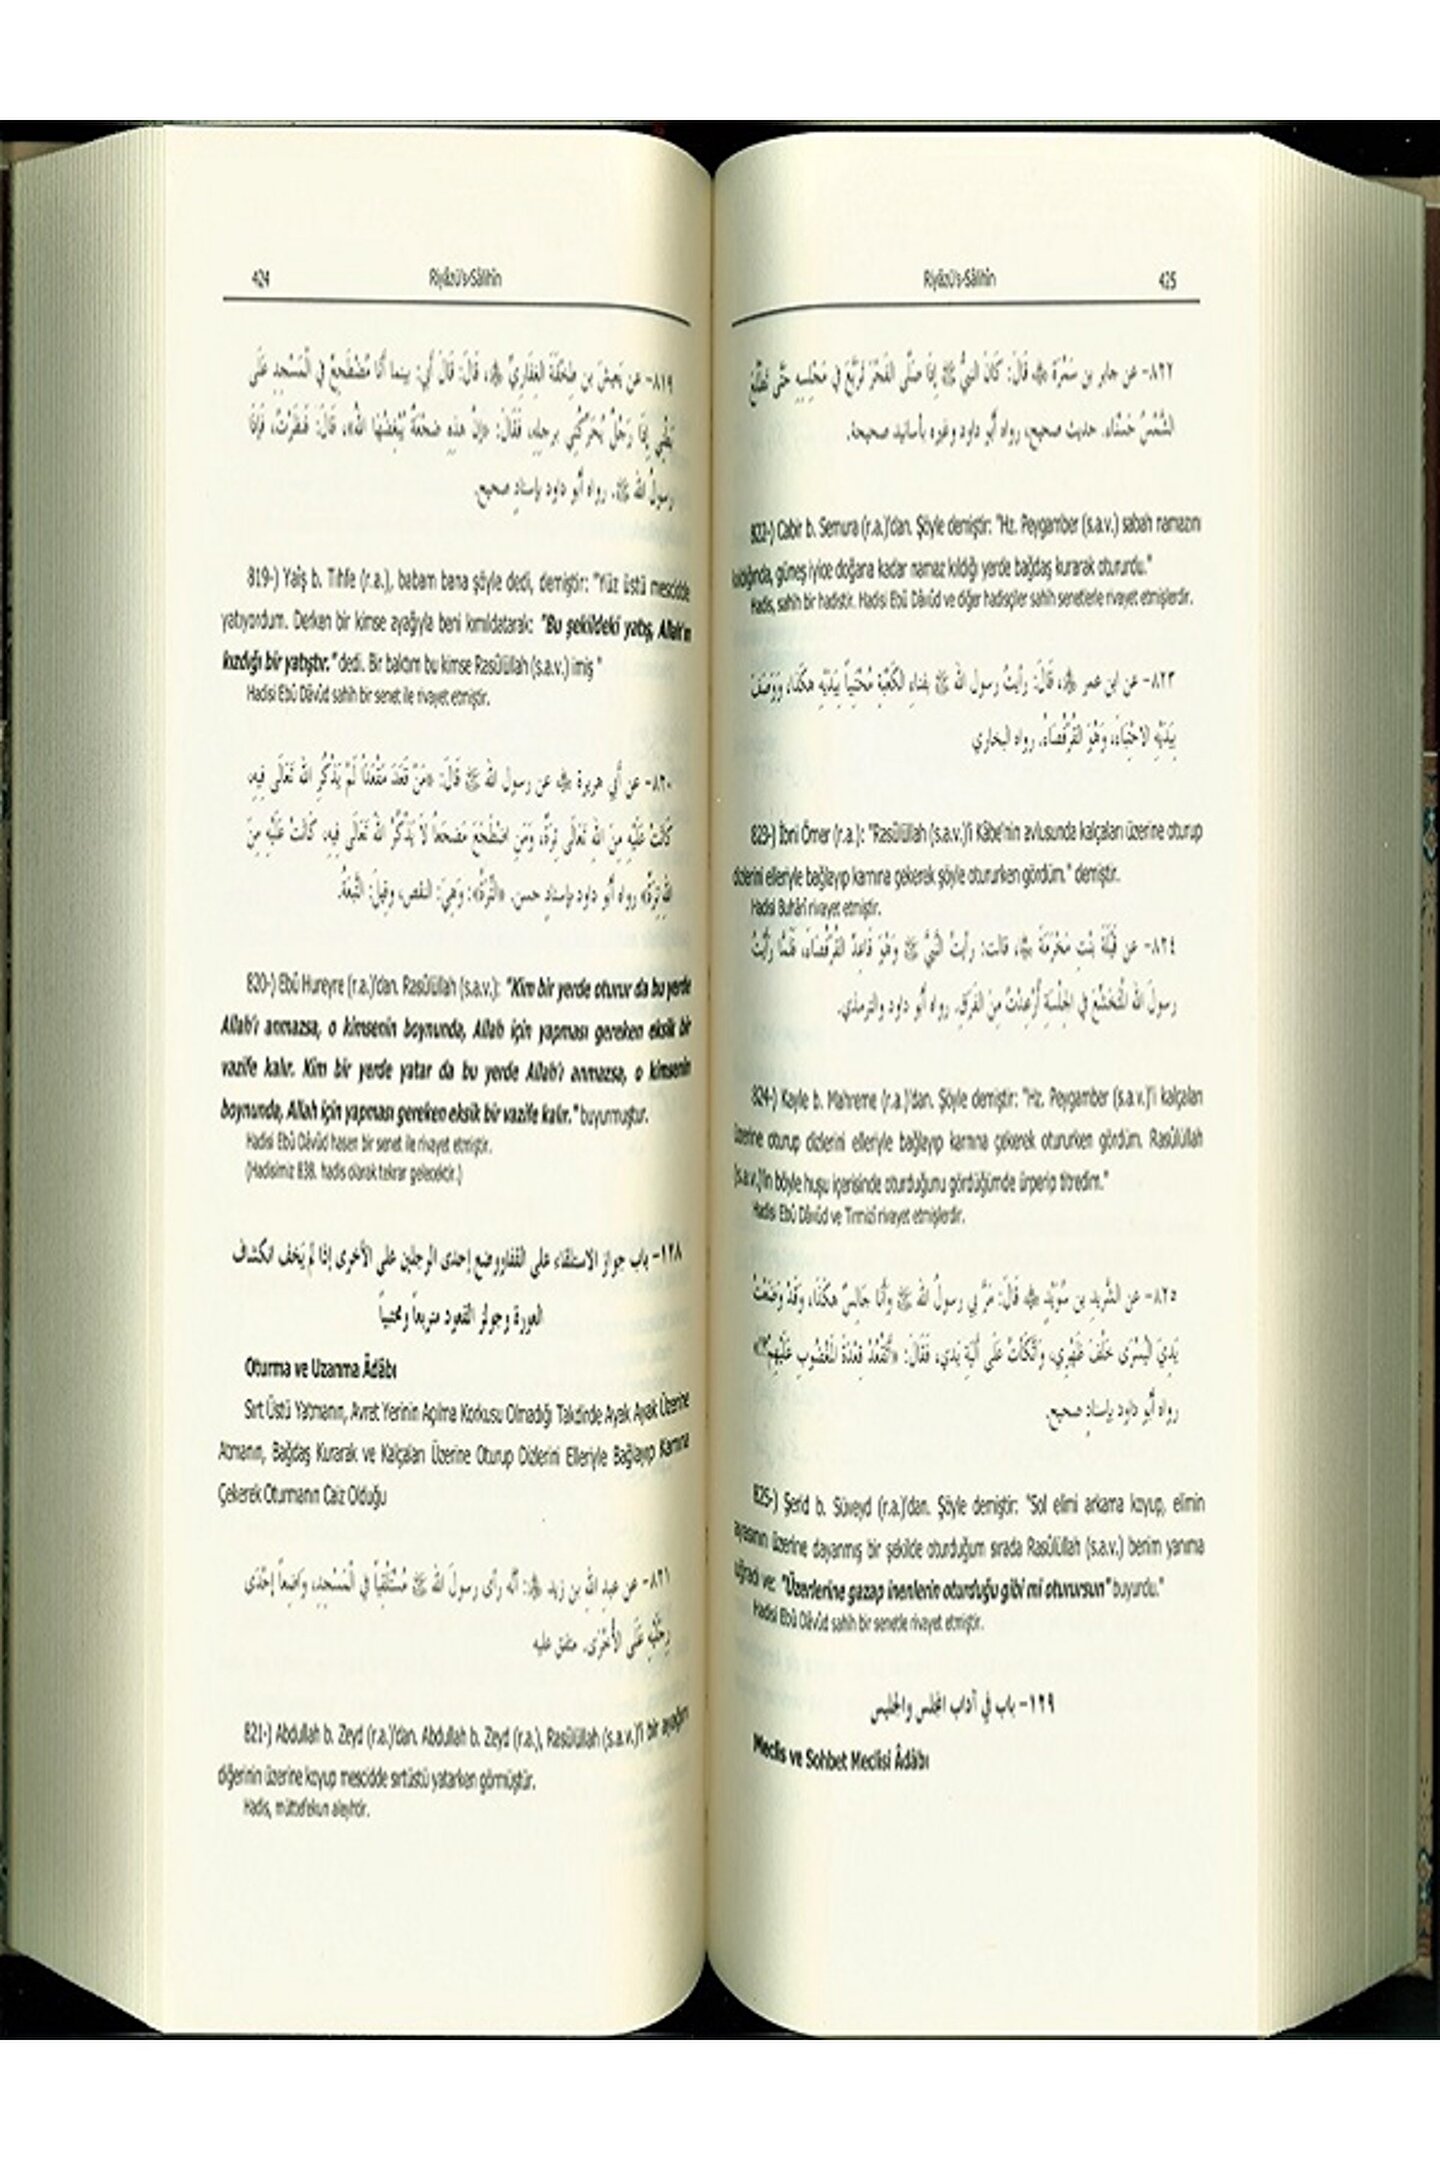 424 Riyâzü's-Sâlihîn
٨١٩- عن يَعِيشَ بن طِخْفَةَ الغِفَارِيِّ ﷺ، قَالَ: قَالَ أَبي: بينما أَنَا مُضْطَجِعٌ فِي الْمَسْجِدِ عَلَى
بَطْنِي إِذَا رَجُلٌ يُحَرِّكُنِي بِرِجلِهِ، فَقَالَ: «إِنَّ هذِهِ ضجْعَةٌ يُبْغِضُهَا اللهُ»، قَالَ: فَنظَرْتُ، فَإِذَا
رسولُ الله ﷺ. رواه أَبو داود بإسنادٍ صحيح.
819-) Yaîş b. Tıhfe (r.a.), babam bana şöyle dedi, demiştir: "Yüz üstü mescidde
yatıyordum. Derken bir kimse ayağıyla beni kımıldatarak: "Bu şekildeki yatış, Allah'ın
kızdığı bir yatıştır." dedi. Bir baktım bu kimse Rasûlüllah (s.a.v.) imiş "
Hadisi Ebû Dâvûd sahih bir senet ile rivayet etmiştir.
٨٢٠- عن أَبي هريرة ﷺ عن رسول الله ﷺ قَالَ: «مَنْ قَعَدَ مَقْعَداً لَمْ يَذْكُرِ الله تَعَالَى فِيهِ،
كَانَتْ عَلَيْهِ مِنَ اللهِ تَعَالَى تِرَةٌ، وَمَنِ اضْطَجَعَ مَضْجَعاً لاَ يَذْكُرُ اللهَ تَعَالَى فِيهِ، كَانَتْ عَلَيْهِ مِنَ
اللهِ تِرَةٌ» رواه أَبو داود بإسنادٍ حسن. «التِّرَةُ»: وَهِيَ: النقص، وقِيلَ: التَّبْعَةُ.
820-) Ebû Hureyre (r.a.)'dan. Rasûlüllah (s.a.v.): "Kim bir yerde oturur da bu yerde
Allah'ı anmazsa, o kimsenin boynunda, Allah için yapması gereken eksik bir
vazife kalır. Kim bir yerde yatar da bu yerde Allah'ı anmazsa, o kimsenin
boynunda, Allah için yapması gereken eksik bir vazife kalır." buyurmuştur.
Hadisi Ebû Dâvûd hasen bir senet ile rivayet etmiştir.
(Hadisimiz 838. hadis olarak tekrar gelecektir.)
١٢٨- باب جواز الاستلقاء على القفا ووضع إحدى الرجلين على الأخرى إذا لم يَخف انكشاف
العورة وجواز القعود متربعاً ومحتبياً
Oturma ve Uzanma Âdâbı
Sırt Üstü Yatmanın, Avret Yerinin Açılma Korkusu Olmadığı Takdirde Ayak Ayak Üzerine
Atmanın, Bağdaş Kurarak ve Kalçaları Üzerine Oturup Dizlerini Elleriyle Bağlayıp Karnına
Çekerek Oturmanın Caiz Olduğu
٨٢١- عن عبدِ اللهِ بن زيد ﷺ: أنَّه رأى رسولَ الله ﷺ مُسْتَلْقِياً فِي الْمَسْجِدِ، وَاضِعاً إحْدَى
رِجْلَيْهِ عَلَى الأُخْرَى. متفق عليه
821-) Abdullah b. Zeyd (r.a.)'dan. Abdullah b. Zeyd (r.a.), Rasûlüllah (s.a.v.)'i bir ayağını
diğerinin üzerine koyup mescidde sırtüstü yatarken görmüştür.
Hadis, müttefekun aleyhtir.
Riyâzü's-Sâlihîn 425
٨٢٢- عن جابر بن سَمُرَة ﷺ قَالَ: كَانَ النبيُّ ﷺ إِذَا صَلَّى الفَجْرَ تَرَبَّعَ فِي مَجْلِسِهِ حَتَّى تَطْلُعَ
الشَّمْسُ حَسْنَاء. حديث صحيح، رواه أَبو داود وغيره بأسانيد صحيحة.
822-) Cabir b. Semura (r.a.)'dan. Şöyle demiştir: "Hz. Peygamber (s.a.v.) sabah namazını
kıldığında, güneş iyice doğana kadar namaz kıldığı yerde bağdaş kurarak otururdu."
Hadis, sahih bir hadistir. Hadisi Ebû Dâvûd ve diğer hadisçiler sahih senetlerle rivayet etmişlerdir.
٨٢٣- عن ابن عمر ﷺ، قَالَ: رأيتُ رسول الله ﷺ بفناءِ الكَعْبَةِ مُحْتَبِياً بِيَدَيْهِ هكَذَا، وَوَصَفَ
بِيَدَيْهِ الاحْتِبَاءَ، وَهُوَ القُرفُصَاءُ. رواه البخاري
823-) İbni Ömer (r.a.): "Rasûlüllah (s.a.v.)'i Kâbe'nin avlusunda kalçaları üzerine oturup
dizlerini elleriyle bağlayıp karnına çekerek şöyle otururken gördüm." demiştir.
Hadisi Buhârî rivayet etmiştir.
٨٢٤- عن قَيْلَةَ بنْتِ مَخْرَمَةَ ﷺ، قالت: رأيتُ النَّبيَّ ﷺ وَهُوَ قَاعِدٌ القُرْفُصَاءَ، فَلَمَّا رَأَيْتُ
رسولَ الله الْمُتَخَشِّعَ فِي الجِلْسَةِ أُرْعِدْتُ مِنَ الفَرَقِ. رواه أَبو داود والترمذي.
824-) Kayle b. Mahreme (r.a.)'dan. Şöyle demiştir: "Hz. Peygamber (s.a.v.)'i kalçaları
üzerine oturup dizlerini elleriyle bağlayıp karnına çekerek otururken gördüm. Rasûlüllah
(s.a.v.)'in böyle huşu içerisinde oturduğunu gördüğümde ürperip titredim."
Hadisi Ebû Dâvûd ve Tirmizî rivayet etmişlerdir.
٨٢٥- عن الشَّريدِ بن سُوَيْدٍ ﷺ قَالَ: مَرَّ بِي رسولُ الله ﷺ وَأَنَا جَالِسٌ هكَذَا، وَقَدْ وَضَعْتُ
يَدِيَ اليُسْرَى خَلْفَ ظَهْرِي، وَاتَّكَأْتُ عَلَى أَلْيَةِ يَدي، فَقَالَ: «أَتَقْعُدُ قِعْدَةَ الْمَغْضُوبِ عَلَيْهِمْ؟!»
رواه أَبو داود بإسنادٍ صحيح.
825-) Şerîd b. Süveyd (r.a.)'dan. Şöyle demiştir: "Sol elimi arkama koyup, elimin
ayasının üzerine dayanmış bir şekilde oturduğum sırada Rasûlüllah (s.a.v.) benim yanıma
uğradı ve: "Üzerlerine gazap inenlerin oturduğu gibi mi oturursun" buyurdu."
Hadisi Ebû Dâvûd sahih bir senetle rivayet etmiştir.
١٢٩- باب في آداب المجلس والجليس
Meclis ve Sohbet Meclisi Âdâbı